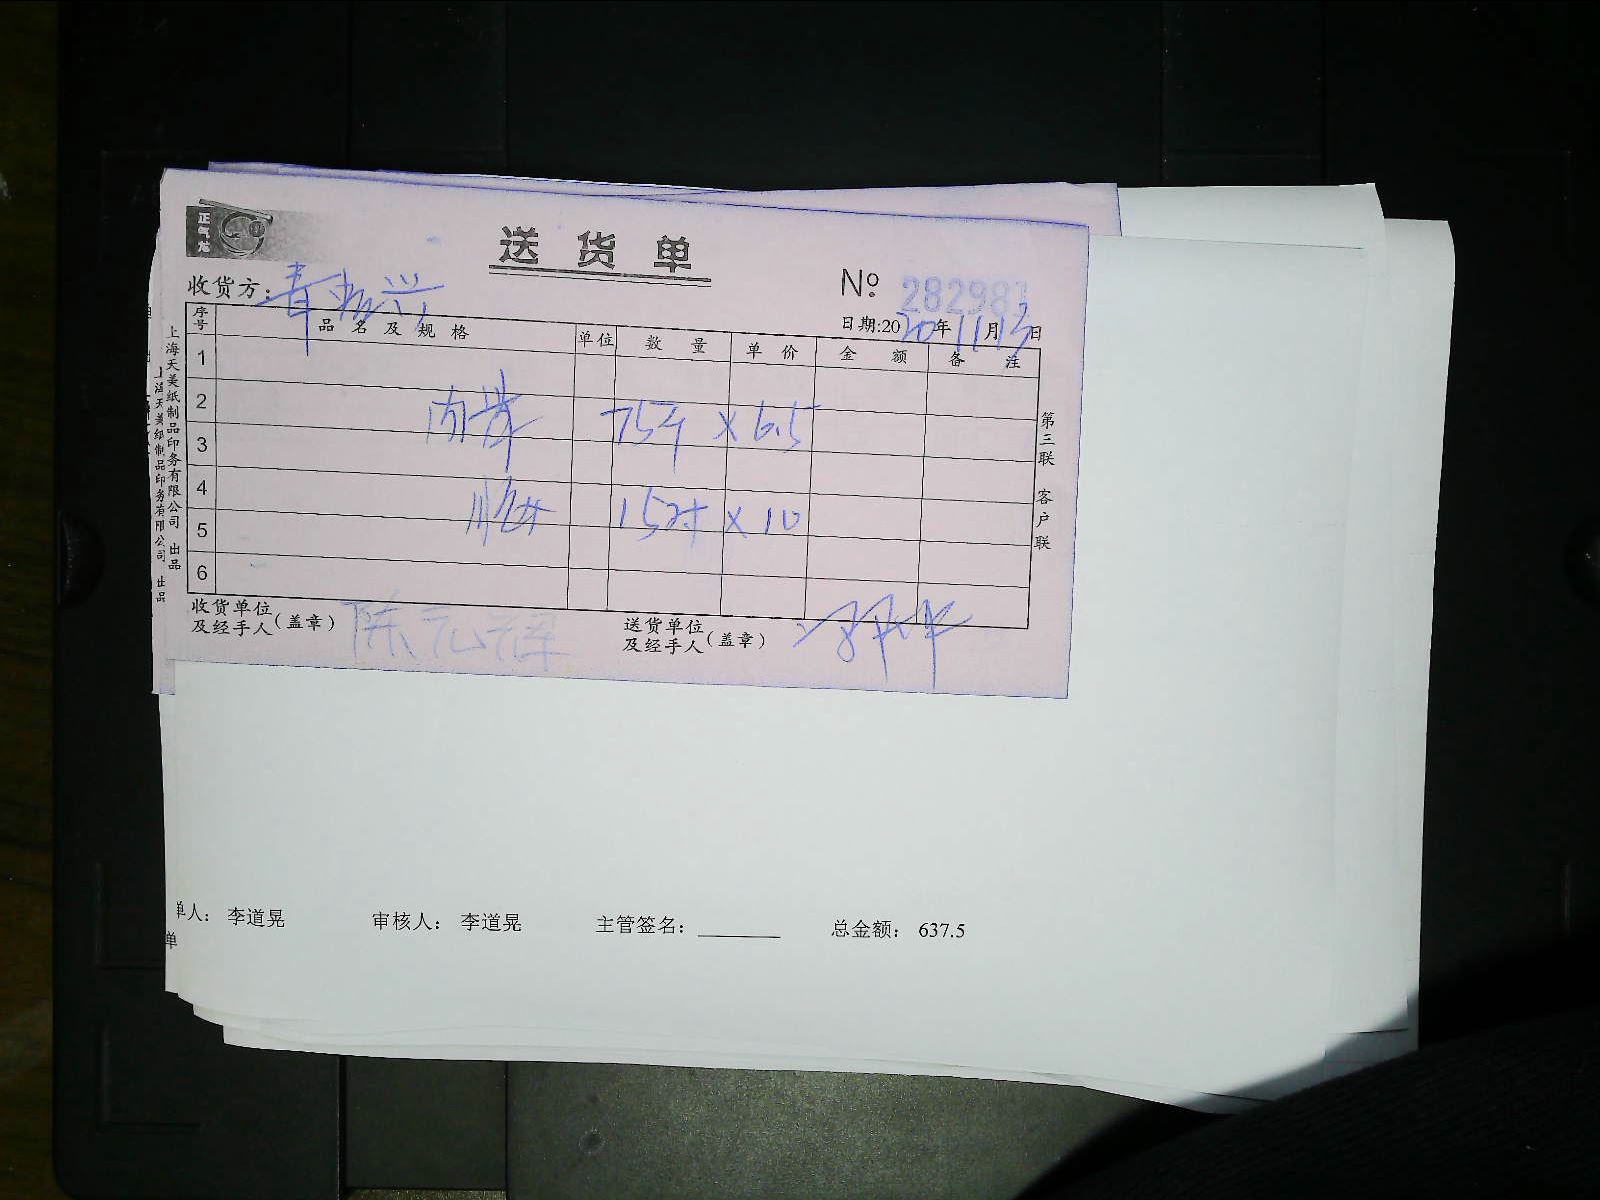 正气龙
送 货 单
收货方:
№ 282981
日期:2020年11月13日
序号 品 名 及 规 格 单位 数 量 单 价 金 额 备 注
1
2
内 75斤 × 6.5
3
4
15对 × 10
5
6
第三联 客户联
上海天美纸制品印务有限公司 出品
上海天美纸制品印务有限公司 出品
收货单位及经手人(盖章) 陈元辉
送货单位及经手人(盖章)
单人: 李道晃 审核人: 李道晃 主管签名: 总金额: 637.5
单